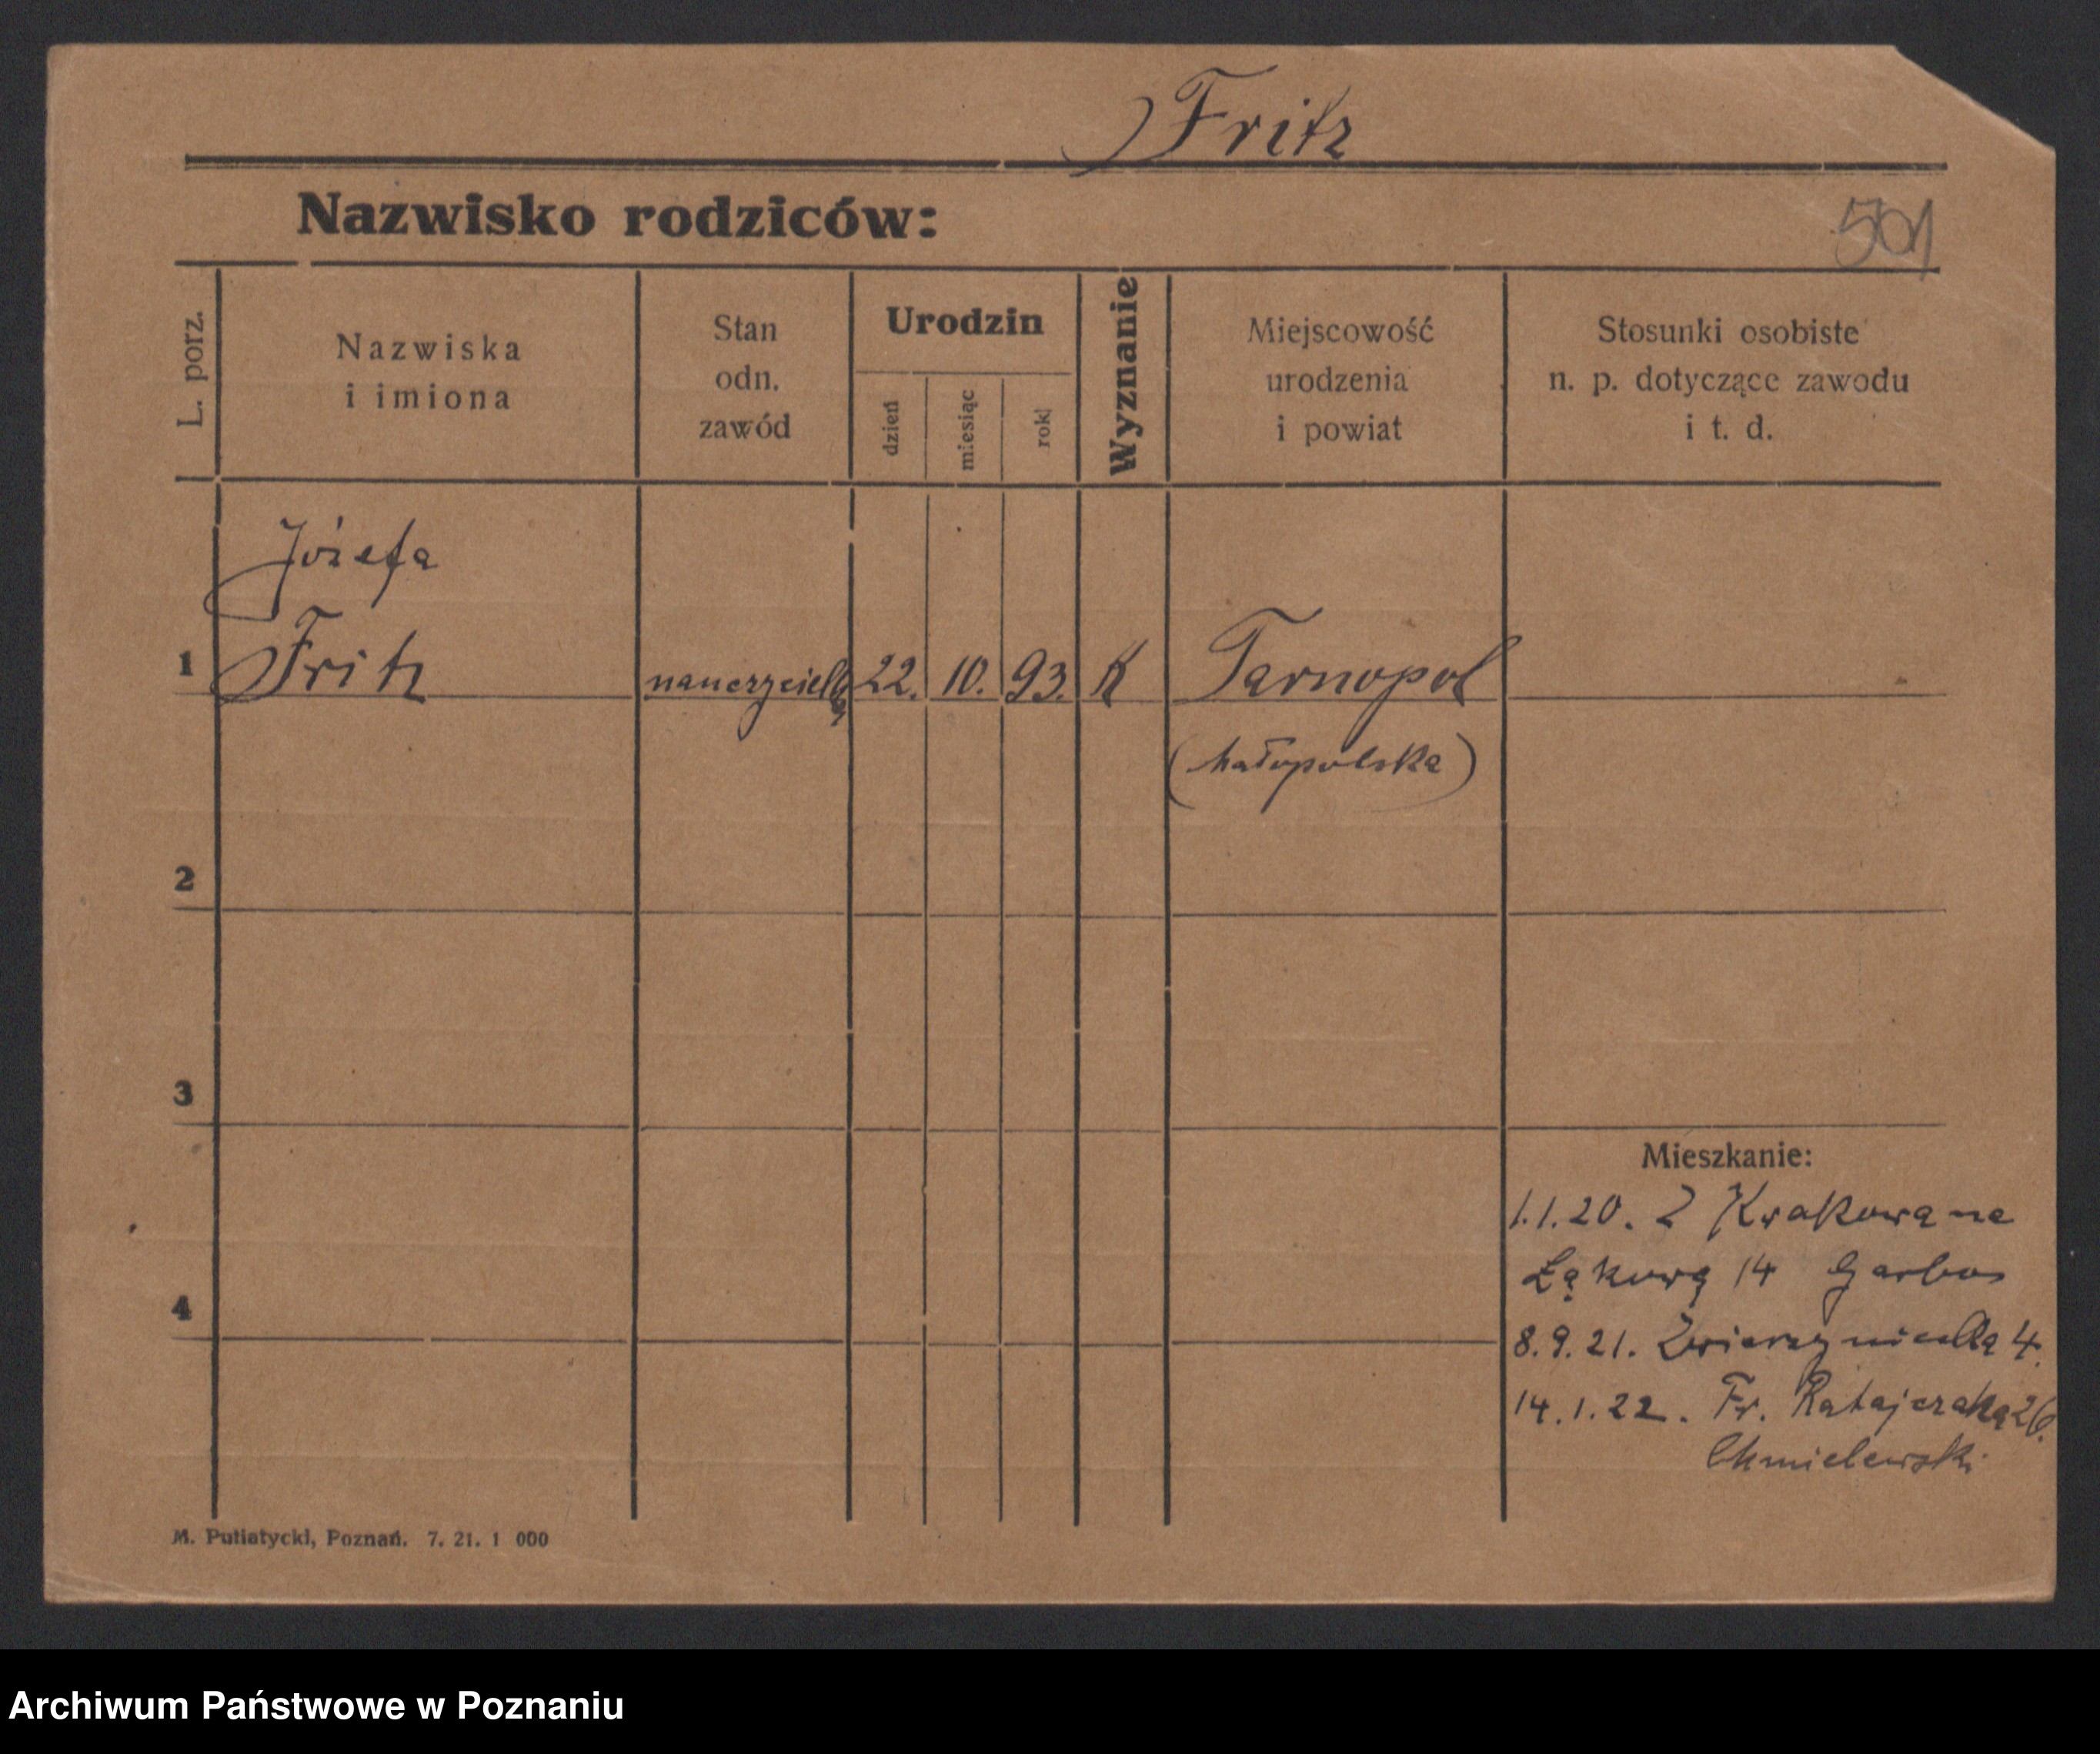 Fritz
Nazwisko rodziców:
501
L. porz.
Nazwiska
i imiona
Stan
odn.
zawód
Urodzin
dzień
miesiąc
rok
Wyznanie
Miejscowość
urodzenia
i powiat
Stosunki osobiste
n. p. dotyczące zawodu
i t. d.
Józefa
1 Fritz nauczycielka 22. 10. 93. K Tarnopol
(Małopolska)
2
3
Mieszkanie:
1.1.20. Z Krakowa na
Łąkową 14
4
8.9.21. Zwierzyniecka 4.
14.1.22. Fr. Ratajczaka 26.
Chmielewski
M. Putiatycki, Poznań. 7. 21. 1 000
Archiwum Państwowe w Poznaniu